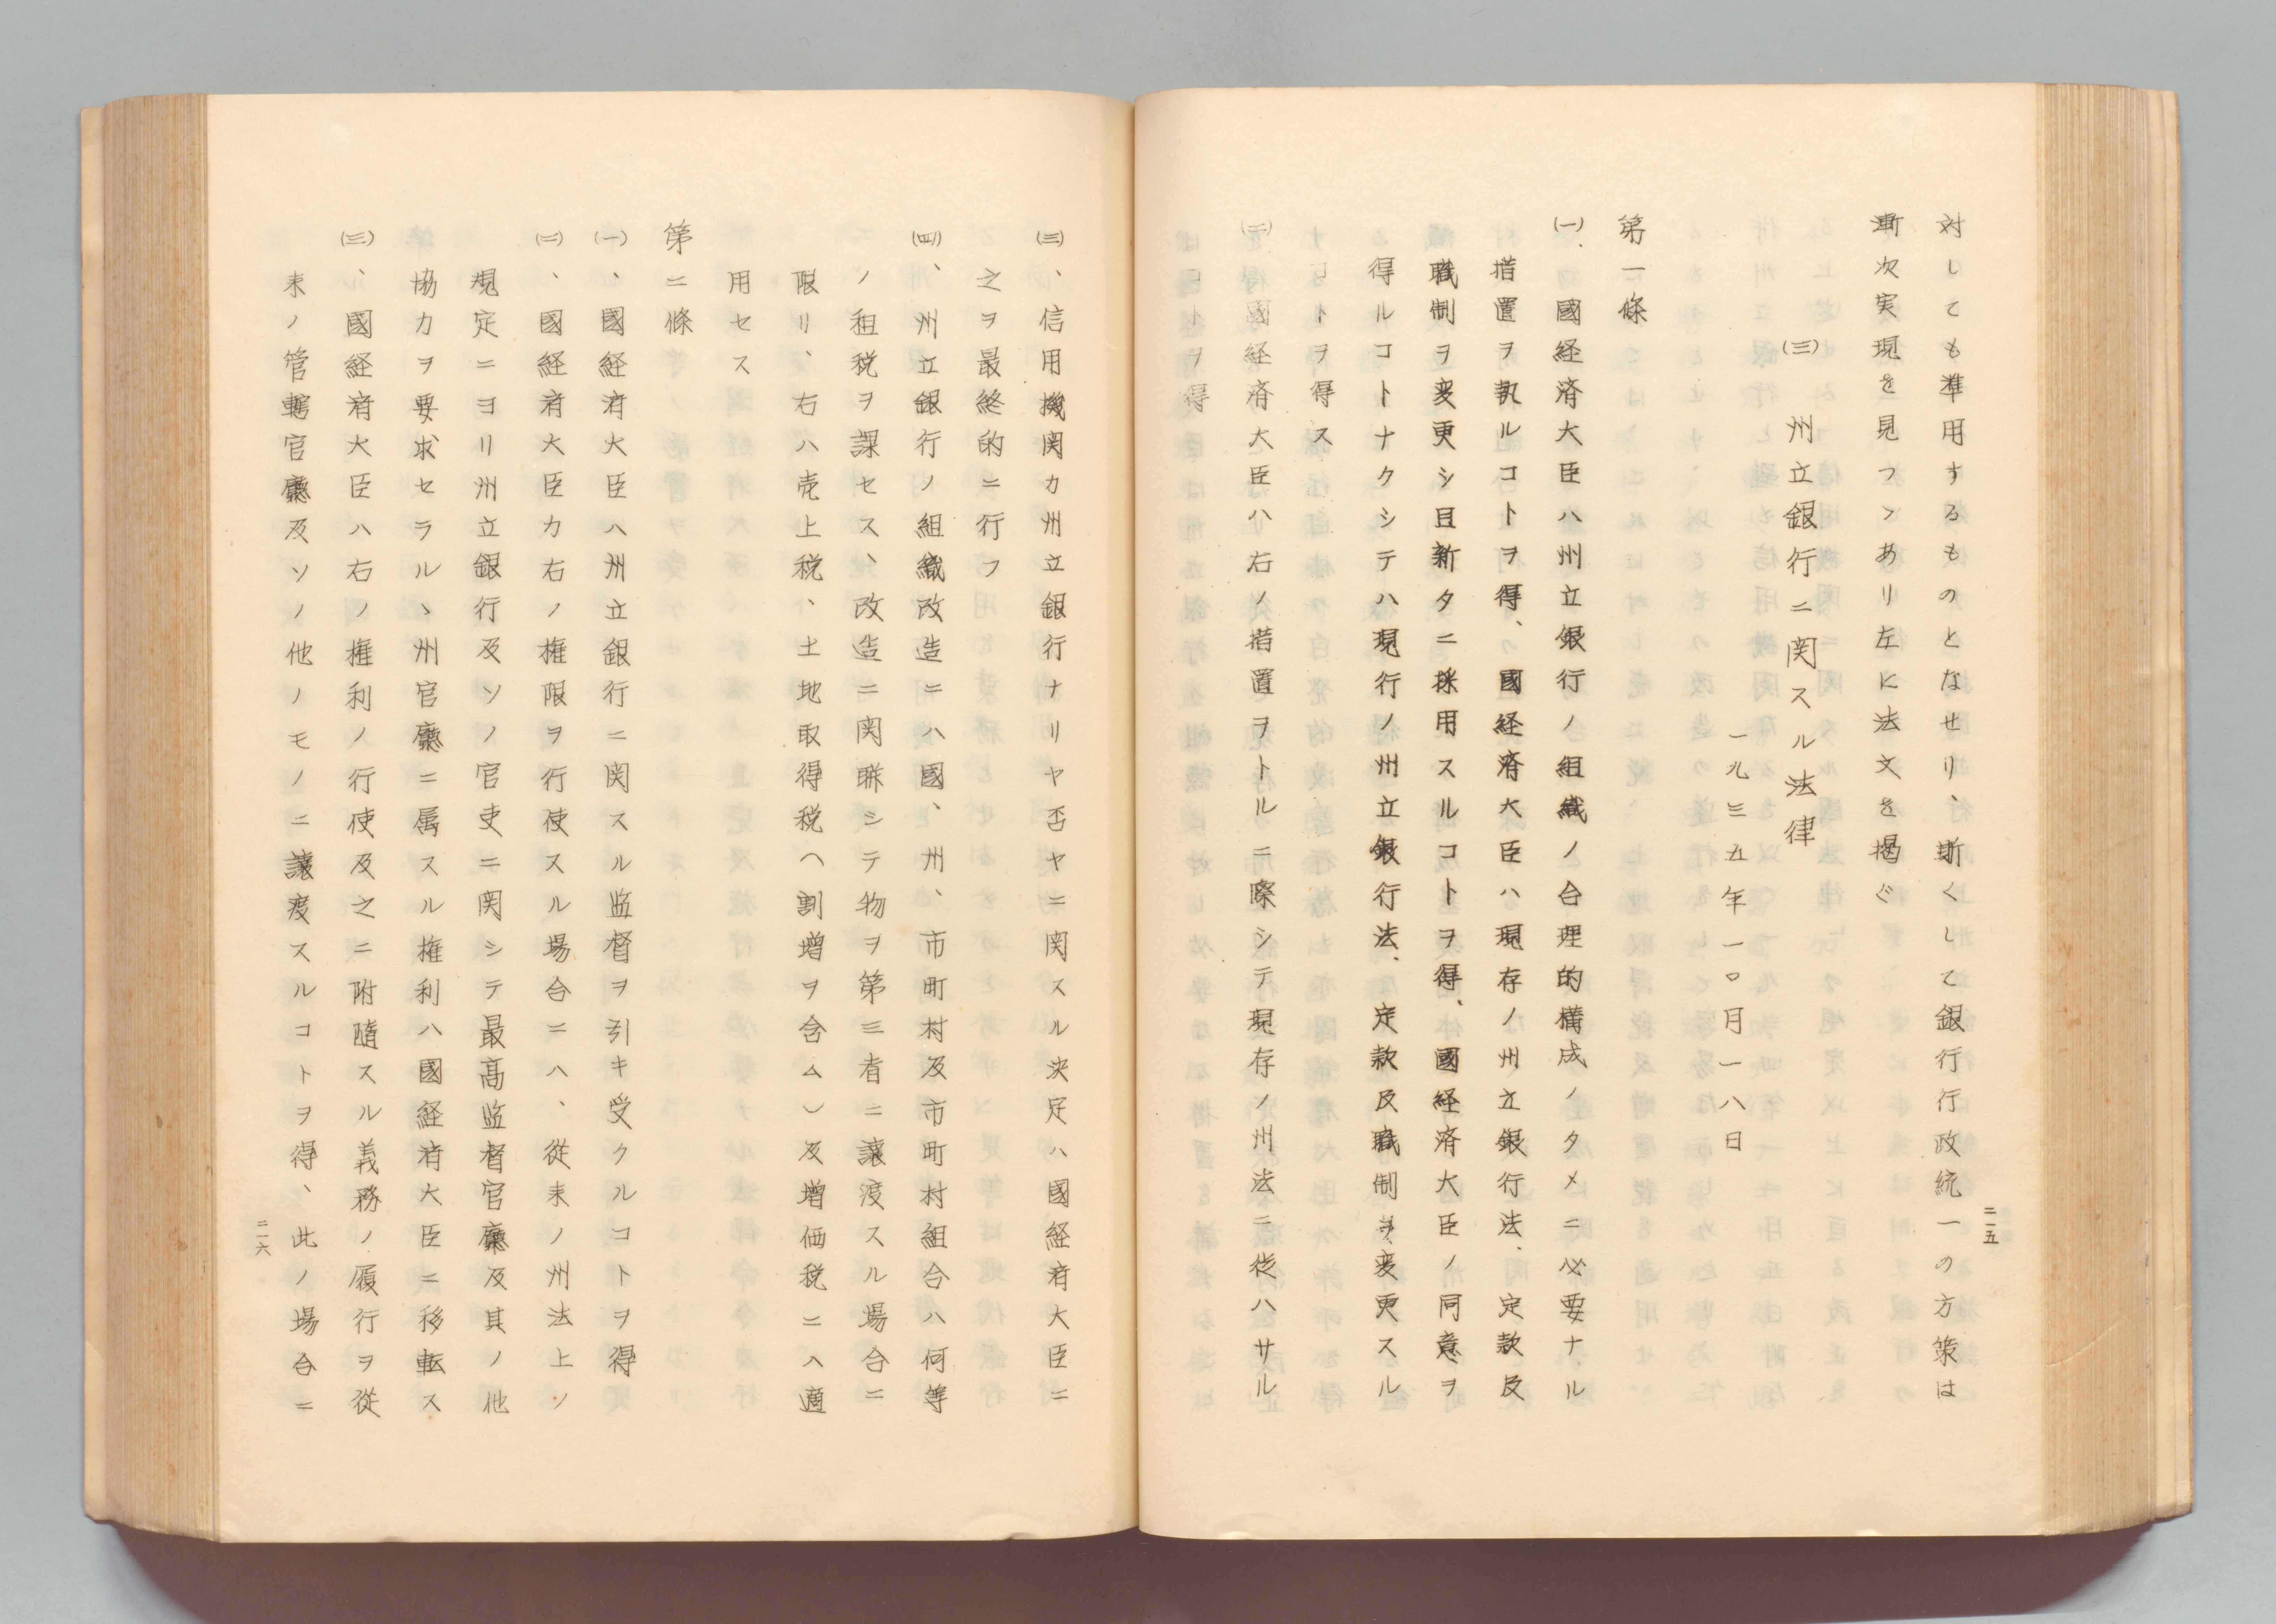 対しても準用するものとなせり、斯くして銀行行政統一の方策は
漸次実現を見つゝあり左に法文を掲ぐ
(三) 州立銀行ニ関スル法律
一九三五年一〇月一八日
第一條
(一)、國経済大臣ハ州立銀行ノ組織ノ合理的構成ノタメニ必要ナル
措置ヲ執ルコトヲ得、國経済大臣ハ現存ノ州立銀行法、定款及
職制ヲ変更シ且新タニ採用スルコトヲ得、國経済大臣ノ同意ヲ
得ルコトナクシテハ現行ノ州立銀行法、定款及職制ヲ変更スル
コトヲ得ス
(二)國経済大臣ハ右ノ措置ヲトルニ際シテ現存ノ州法ニ従ハサル
コトヲ得
二一五
(三)、信用機関カ州立銀行ナリヤ否ヤニ関スル決定ハ國経済大臣ニ
之ヲ最終的ニ行フ
(四)、州立銀行ノ組織改造ニハ國、州、市町村及市町村組合ハ何等
ノ租税ヲ課セス、改造ニ関聯シテ物ヲ第三者ニ譲渡スル場合ニ
限リ、右ハ売上税、土地取得税(割増ヲ含ム)及増価税ニハ適
用セス
第二條
(一)、國経済大臣ハ州立銀行ニ関スル監督ヲ引キ受クルコトヲ得
(二)、國経済大臣カ右ノ権限ヲ行使スル場合ニハ、従来ノ州法上ノ
規定ニヨリ州立銀行及ソノ官吏ニ関シテ最高監督官廳及其ノ他
協力ヲ要求セラルヽ州官廳ニ属スル権利ハ國経済大臣ニ移転ス
(三)、國経済大臣ハ右ノ権利ノ行使及之ニ附随スル義務ノ履行ヲ従
来ノ管轄官廳及ソノ他ノモノニ譲渡スルコトヲ得、此ノ場合ニ
二一六